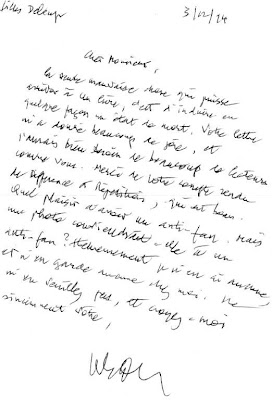 Gilles Deleuze
3/12/74
Cher Monsieur,
la seule mauvaise chose qui puisse
arriver à un livre, c'est d'induire en
quelque façon un état de mort. Votre lettre
m'a donné beaucoup de joie, et
j'aurais bien besoin de beaucoup de lecteurs
comme vous. Merci de votre compte rendu
de Différence et Répétition, qui est beau.
Quel plaisir d'avoir un anti-fan. Mais
une photo conviendrait-elle à un
anti-fan? Heureusement je n'en ai aucune,
et n'en garde aucune chez moi. Ne
m'en veuillez pas, et croyez-moi
sincèrement vôtre,